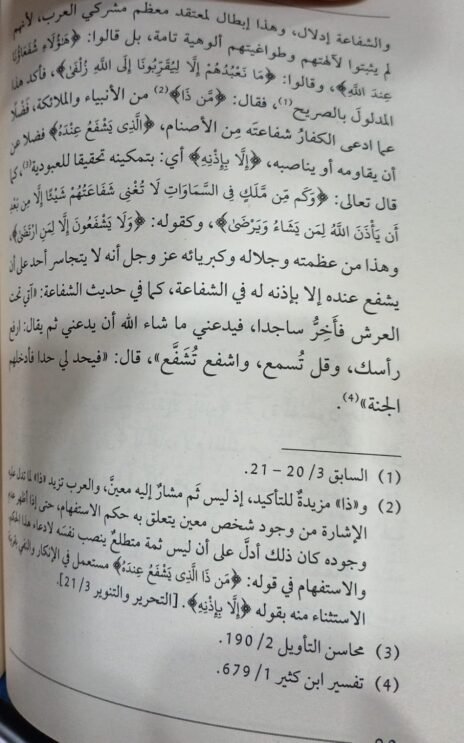 والشفاعة إدلال، وهذا إبطال لمعتقد معظم مشركي العرب، لأنهم
لم يثبتوا لآلهتهم وطواغيتهم ألوهية تامة، بل قالوا: ﴿هَٰٓؤُلَآءِ شُفَعَٰٓؤُنَا
عِندَ ٱللَّهِ﴾، وقالوا: ﴿مَا نَعۡبُدُهُمۡ إِلَّا لِيُقَرِّبُونَآ إِلَى ٱللَّهِ زُلۡفَىٰٓ﴾، فأكد هذا
المدلولَ بالصريح(1)، فقال: ﴿مَّن ذَا﴾(2) من الأنبياء والملائكة، فَضْلًا
عما ادعى الكفارُ شفاعتَه مِن الأصنام، ﴿ٱلَّذِي يَشۡفَعُ عِندَهُۥٓ﴾ فضلا عن
أن يقاومه أو يناصبه، ﴿إِلَّا بِإِذۡنِهِۦ﴾ أي: بتمكينه تحقيقا للعبودية(3)، كما
قال تعالى: ﴿وَكَم مِّن مَّلَكٖ فِي ٱلسَّمَٰوَٰتِ لَا تُغۡنِي شَفَٰعَتُهُمۡ شَيۡـًٔا إِلَّا مِنۢ بَعۡدِ
أَن يَأۡذَنَ ٱللَّهُ لِمَن يَشَآءُ وَيَرۡضَىٰٓ﴾، وكقوله: ﴿وَلَا يَشۡفَعُونَ إِلَّا لِمَنِ ٱرۡتَضَىٰ﴾،
وهذا من عظمته وجلاله وكبريائه عز وجل أنه لا يتجاسر أحد على أن
يشفع عنده إلا بإذنه له في الشفاعة، كما في حديث الشفاعة: «آتي تحت
العرش فَأَخِرُّ ساجدا، فيدعني ما شاء الله أن يدعني ثم يقال: ارفع
رأسك، وقل تُسمع، واشفع تُشَفَّع»، قال: «فيحد لي حدا فأدخلهم
الجنة»(4).
(1) السابق 3/ 20 – 21.
(2) و«ذا» مزيدةٌ للتأكيد، إذ ليس ثَم مشارٌ إليه معينٌ، والعرب تزيد «ذا» لما تدل عليه
الإشارة من وجود شخص معين يتعلق به حكم الاستفهام، حتى إذا أظهر عدم
وجوده كان ذلك أدلَّ على أن ليس ثمة متطلعٌ ينصب نفسَه لادعاء هذا الحكم،
والاستفهام في قوله: ﴿مَن ذَا ٱلَّذِي يَشۡفَعُ عِندَهُۥٓ﴾ مستعمل في الإنكار والنفي بقرينة
الاستثناء منه بقوله ﴿إِلَّا بِإِذۡنِهِۦ﴾. [التحرير والتنوير 3/ 21].
(3) محاسن التأويل 2/ 190.
(4) تفسير ابن كثير 1/ 679.